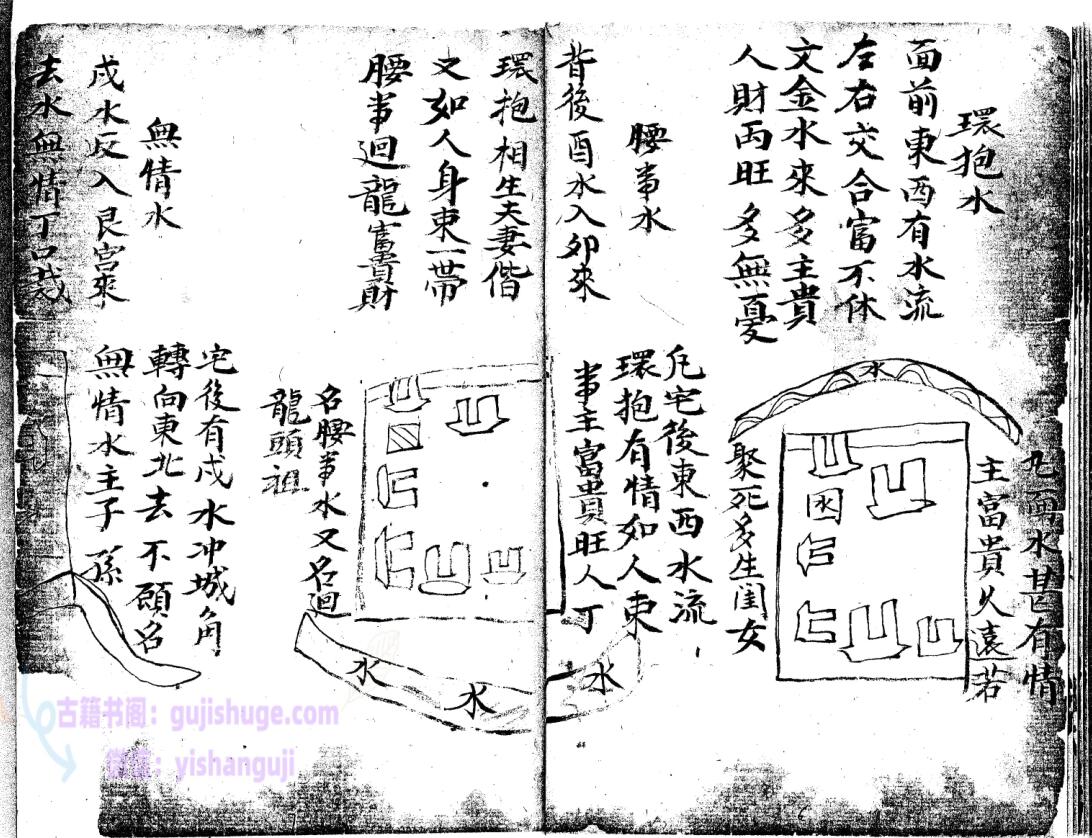 環抱水
面前東西有水流
左右交合富不休
文金水來多主貴
人財両旺多無憂
水
九面水甚有情
主富貴久遠若
聚死多生閨女
腰帯水
背後酉水入卯來
環抱相生夫妻偕
又如人身束一帶
腰帯迴龍富貴財
凡宅後東西水流
環抱有情如人束
帯主富貴旺人丁
水
水
水
名腰帯水又名迴
龍頭祖
無情水
戍水反入艮宮來
去水無情丁口
宅後有戍水冲城角
轉向東北去不顧名
無情水主子孫
古籍书阁：gujishuge.com
微信：yishanguji